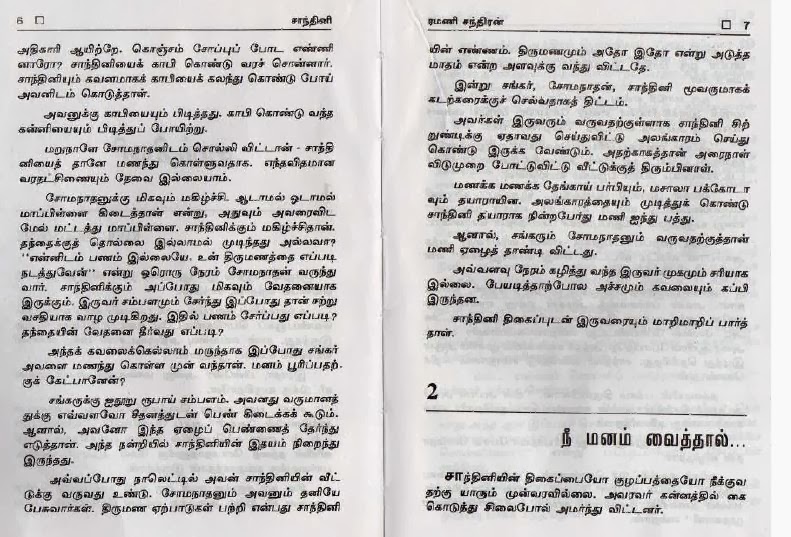 6 □ சாந்தினி
அதிகாரி ஆயிற்றே. கொஞ்சம் சோப்புப் போட எண்ணி
னாரோ? சாந்தினியைக் காபி கொண்டு வரச் சொன்னார்.
சாந்தினியும் கவனமாகக் காபியைக் கலந்து கொண்டு போய்
அவனிடம் கொடுத்தாள்.
அவனுக்கு காபியையும் பிடித்தது. காபி கொண்டு வந்த
கன்னியையும் பிடித்துப் போயிற்று.
மறுநாளே சோமநாதனிடம் சொல்லி விட்டான் - சாந்தி
னியைத் தானே மணந்து கொள்ளுவதாக. எந்தவிதமான
வரதட்சிணையும் தேவை இல்லையாம்.
சோமநாதனுக்கு மிகவும் மகிழ்ச்சி. ஆடாமல் ஓடாமல்
மாப்பிள்ளை கிடைத்தான் என்று, அதுவும் அவரைவிட
மேல் மட்டத்து மாப்பிள்ளை. சாந்தினிக்கும் மகிழ்ச்சிதான்.
தந்தைக்குத் தொல்லை இல்லாமல் முடிந்தது அல்லவா?
"என்னிடம் பணம் இல்லையே. உன் திருமணத்தை எப்படி
நடத்துவேன்" என்று ஒரொரு நேரம் சோமநாதன் வருந்து
வார். சாந்தினிக்கும் அப்போது மிகவும் வேதனையாக
இருக்கும். இருவர் சம்பளமும் சேர்ந்து இப்போது தான் சற்று
வசதியாக வாழ முடிகிறது. இதில் பணம் சேர்ப்பது எப்படி?
தந்தையின் வேதனை தீர்வது எப்படி?
அந்தக் கவலைக்கெல்லாம் மருந்தாக இப்போது சங்கர்
அவளை மணந்து கொள்ள முன் வந்தான். மனம் பூரிப்பதற்
குக் கேட்பானேன்?
சங்கருக்கு ஐநூறு ரூபாய் சம்பளம். அவனது வருமானத்
துக்கு எவ்வளவோ சீதனத்துடன் பெண் கிடைக்கக் கூடும்.
ஆனால், அவனோ இந்த ஏழைப் பெண்ணைத் தேர்ந்து
எடுத்தான். அந்த நன்றியில் சாந்தினியின் இதயம் நிறைந்து
இருந்தது.
அவ்வப்போது நாலெட்டில் அவன் சாந்தினியின் வீட்
டுக்கு வருவது உண்டு. சோமநாதனும் அவனும் தனியே
பேசுவார்கள். திருமண ஏற்பாடுகள் பற்றி என்பது சாந்தினி
ரமணி சந்திரன் □ 7
யின் எண்ணம். திருமணமும் அதோ இதோ என்று அடுத்த
மாதம் என்ற அளவுக்கு வந்து விட்டதே.
இன்று சங்கர், சோமநாதன், சாந்தினி மூவருமாகக்
கடற்கரைக்குச் செல்வதாகத் திட்டம்.
அவர்கள் இருவரும் வருவதற்குள்ளாக சாந்தினி சிற்
றுண்டிக்கு ஏதாவது செய்துவிட்டு அலங்காரம் செய்து
கொண்டு இருக்க வேண்டும். அதற்காகத்தான் அரைநாள்
விடுமுறை போட்டுவிட்டு வீட்டுக்குத் திரும்பினாள்.
மணக்க மணக்க தேங்காய் பர்பியும், மசாலா பக்கோடா
வும் தயாராயின. அலங்காரத்தையும் முடித்துக் கொண்டு
சாந்தினி தயாராக நின்றபேர்து மணி ஐந்து பத்து.
ஆனால், சங்கரும் சோமநாதனும் வருவதற்குத்தான்
மணி ஏழைத் தாண்டி விட்டது.
அவ்வளவு நேரம் கழித்து வந்த இருவர் முகமும் சரியாக
இல்லை. பேயடித்தாற்போல அச்சமும் கவலையும் கப்பி
இருந்தன.
சாந்தினி திகைப்புடன் இருவரையும் மாறிமாறிப் பார்த்
தாள்.
2
நீ மனம் வைத்தால்...
சாந்தினியின் திகைப்பையோ குழப்பத்தையோ நீக்குவ
தற்கு யாரும் முன்வரவில்லை. அவரவர் கன்னத்தில் கை
கொடுத்து சிலைபோல் அமர்ந்து விட்டனர்.